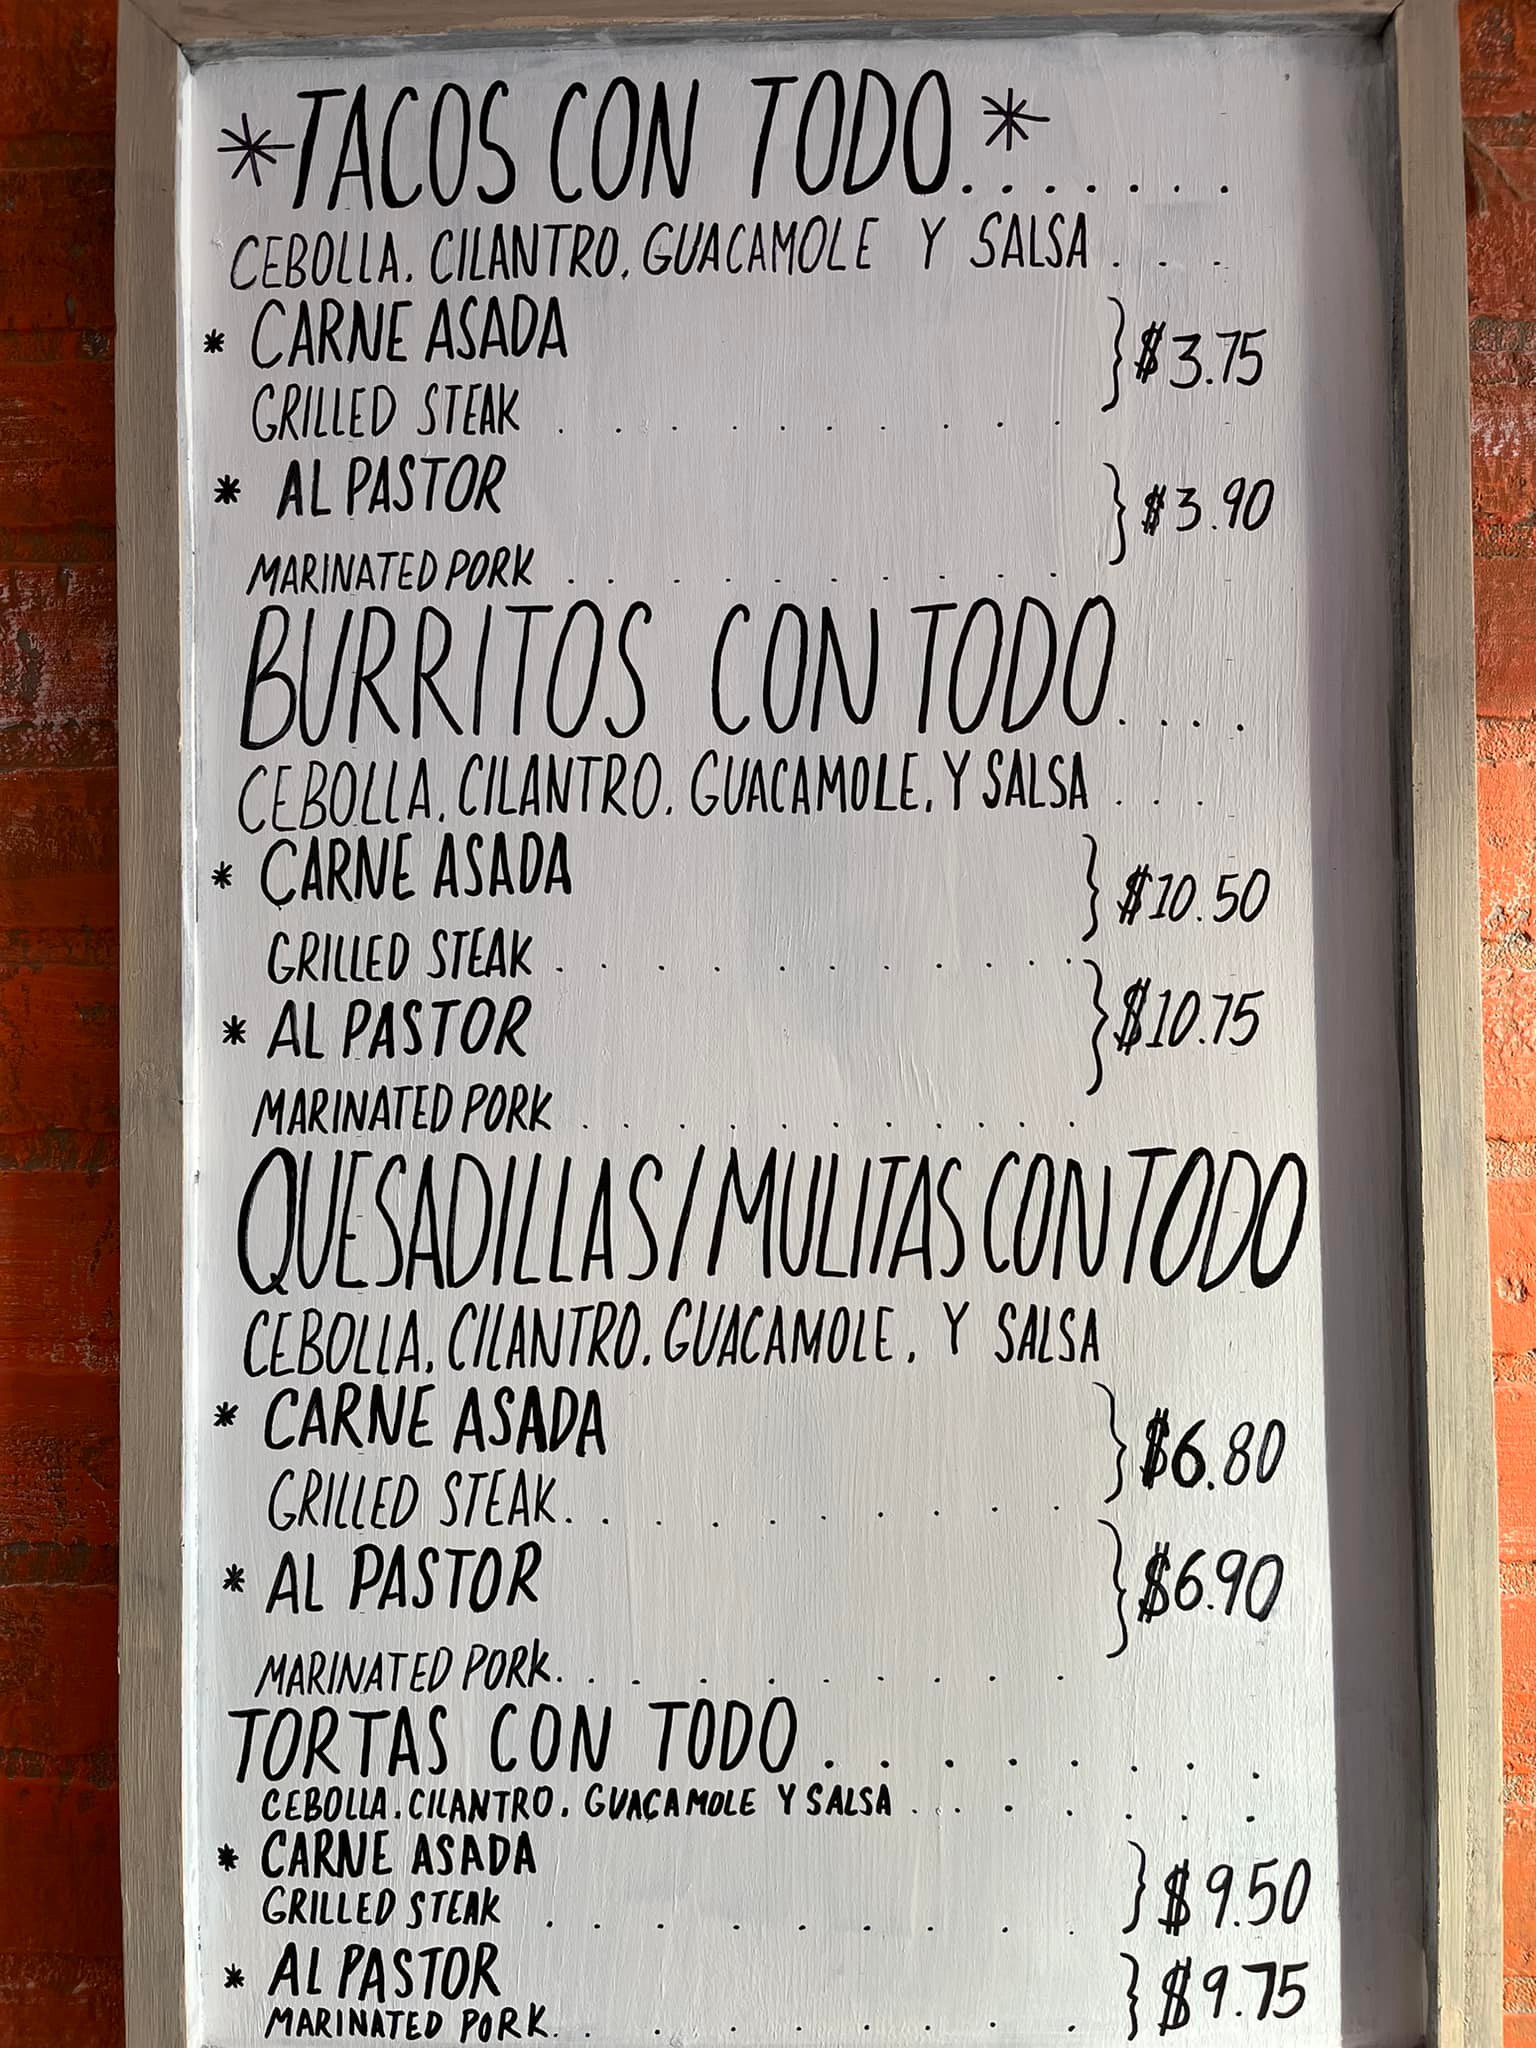 *TACOS CON TODO*.......
CEBOLLA. CILANTRO, GUACAMOLE Y SALSA . . .
* CARNE ASADA } $3.75
GRILLED STEAK . . . . . . . . . .
* AL PASTOR } $3.90
MARINATED PORK . . . . . . . . . .
BURRITOS CON TODO . . . .
CEBOLLA, CILANTRO, GUACAMOLE, Y SALSA . . .
* CARNE ASADA } $10.50
GRILLED STEAK . . . . . . . . . . .
* AL PASTOR } $10.75
MARINATED PORK . . . . . . . . . . .
QUESADILLAS/MULITAS CON TODO
CEBOLLA, CILANTRO, GUACAMOLE, Y SALSA
* CARNE ASADA } $6.80
GRILLED STEAK. . . . . . . . . .
* AL PASTOR } $6.90
MARINATED PORK. . . . . . . . . .
TORTAS CON TODO . . . . . . . .
CEBOLLA. CILANTRO. GUACAMOLE Y SALSA . . . . . . .
* CARNE ASADA } $9.50
GRILLED STEAK . . . . . . . . .
* AL PASTOR } $9.75
MARINATED PORK. . . . . . . . .